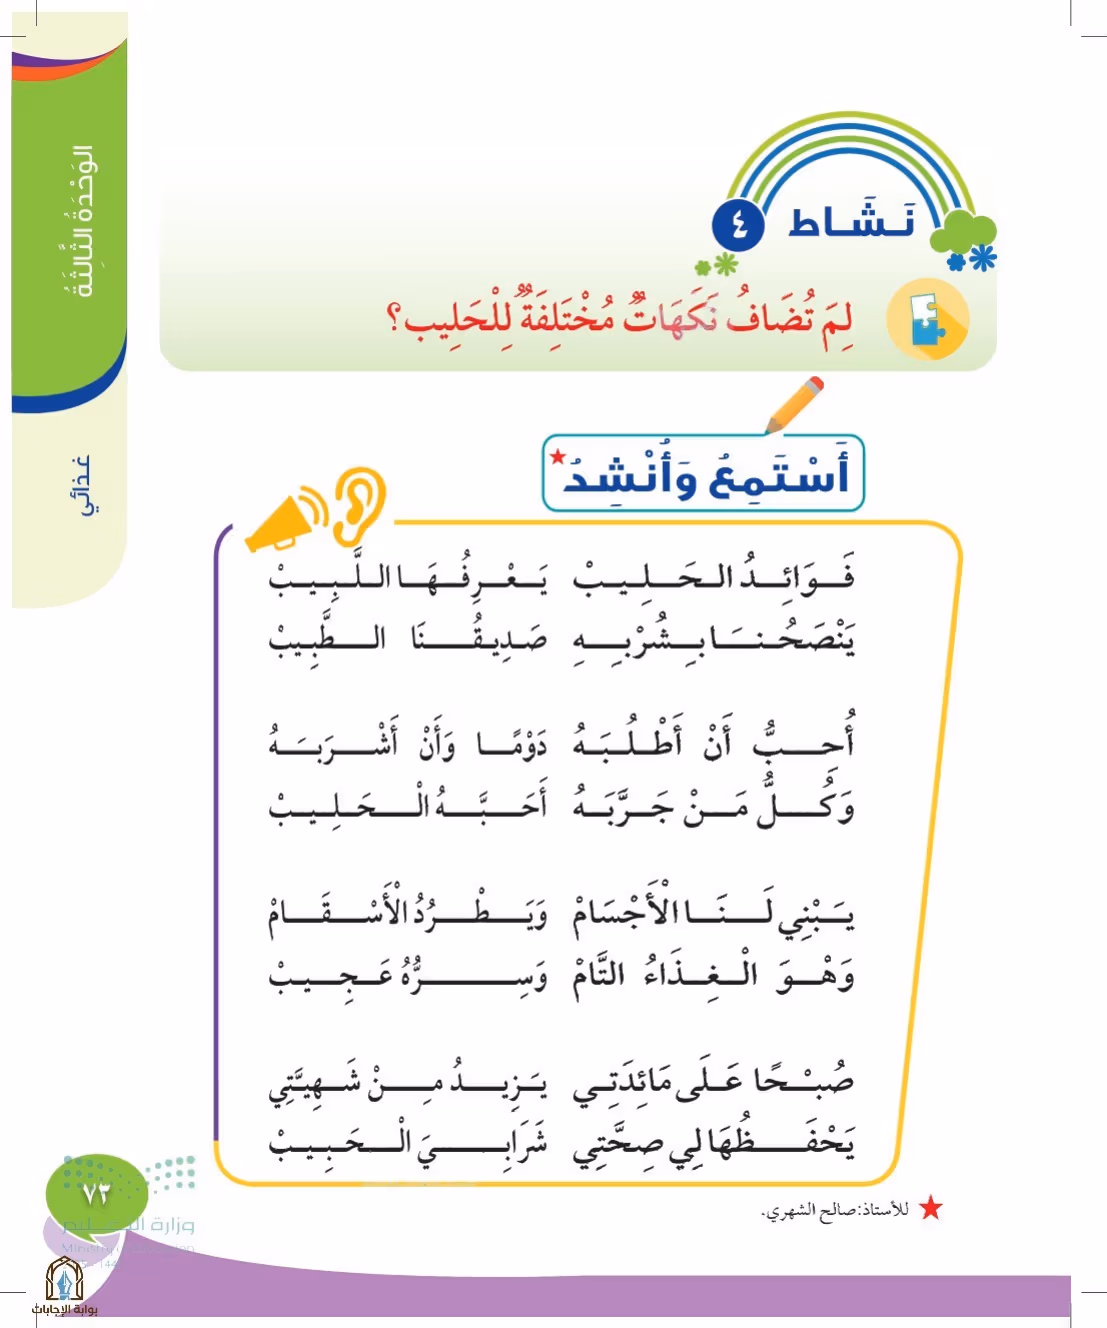 الوَحْدَةُ الثَّالِثَةُ
غذائي
نَشَاط ٤
لِمَ تُضَافُ نَكَهَاتٌ مُخْتَلِفَةٌ لِلْحَلِيبِ؟
أَسْتَمِعُ وَأُنْشِدُ
فَوَائِدُ الحَلِيبْ يَعْرِفُهَا اللَّبِيبْ
يَنْصَحُنَا بِشُرْبِهِ صَدِيقُنَا الطَّبِيبْ
أُحِبُّ أَنْ أَطْلُبَهُ دَوْمًا وَأَنْ أَشْرَبَهُ
وَكُلُّ مَنْ جَرَّبَهُ أَحَبَّهُ الْحَلِيبْ
يَبْنِي لَنَا الْأَجْسَامْ وَيَطْرُدُ الْأَسْقَامْ
وَهْوَ الْغِذَاءُ التَّامْ وَسِرُّهُ عَجِيبْ
صُبْحًا عَلَى مَائِدَتِي يَزِيدُ مِنْ شَهِيَّتِي
يَحْفَظُهَا لِي صِحَّتِي شَرَابِيَ الْحَبِيبْ
للأستاذ:صالح الشهري.
٧٣
وزارة التعليم
بوابة الإجابات